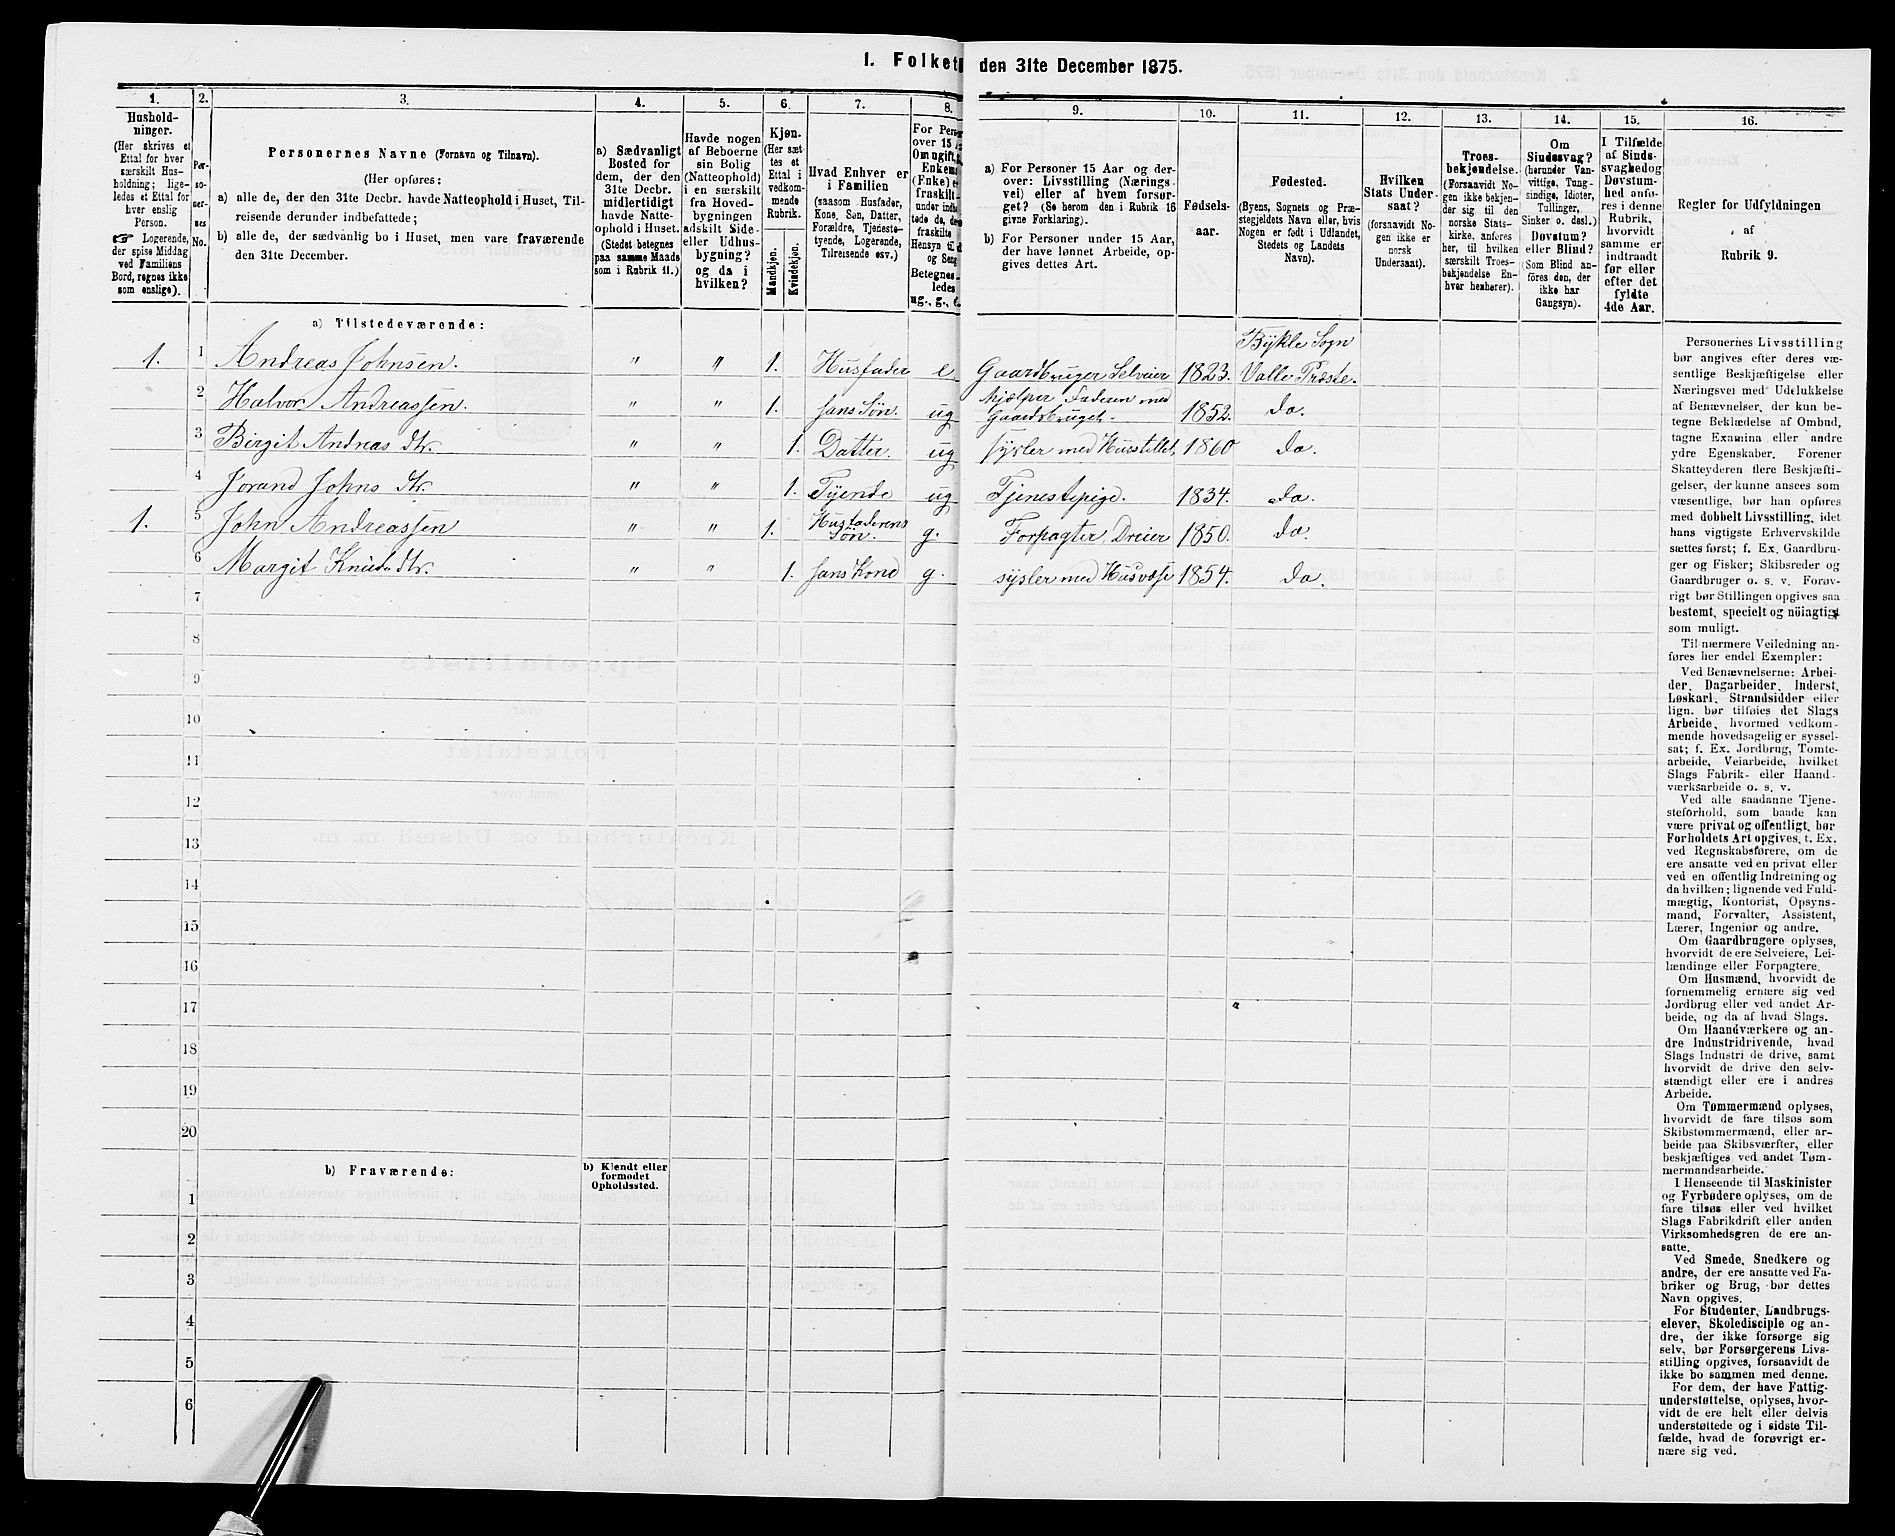 1. Folket den 31te December 1875.
1. 2. 3. 4. 5. 6. 7. 8. 9. 10. 11. 12. 13. 14. 15. 16.
Hushold-
ninger.
(Her skrives et
Ettal for hver
særskilt Hus-
holdning; lige-
ledes et Ettal for
hver enslig
Person.
☞ Logerende,
der spise Middag
ved Familiens
Bord, regnes ikke
som enslige).
Per-
so-
ner-
nes
No.
Personernes Navne (Fornavn og Tilnavn).
(Her opføres:
a) alle de, der den 31te Decbr. havde Natteophold i Huset, Til-
reisende derunder indbefattede;
b) alle de, der sædvanlig bo i Huset, men vare fraværende
den 31te December.
a) Sædvanligt
Bosted for
dem, der den
31te Decbr.
midlertidigt
havde Natte-
ophold i Huset.
(Stedet betegnes
paa samme Maade
som i Rubrik 11.)
Havde nogen
af Beboerne
sin Bolig
(Natteophold)
i en særskilt
fra Hoved-
bygningen
adskilt Side-
eller Udhus-
bygning?
og da i
hvilken?
Kjøn.
(Her sæt-
tes et
Ettal i
vedkom-
mende
Rubrik.
Mandkjøn.
Kvindekjøn.
Hvad Enhver er
i Familien
(saasom Husfader,
Kone, Søn, Datter,
Forældre, Tjeneste-
tyende, Logerende,
Tilreisende osv.)
For Perso
over 15 A
Om ugift,
Enkema
(Enke) e
fraskilt
under indbe
tede de, de
fraskilte
Hensyn til
og Seng
Betegnes
ledes
ug., g., e.
a) For Personer 15 Aar og der-
over: Livsstilling (Nærings-
vei) eller af hvem forsør-
get? (Se herom den i Rubrik 16
givne Forklaring).
b) For Personer under 15 Aar,
der have lønnet Arbeide, op-
gives dettes Art.
Fødsels-
aar.
Fødested.
(Byens, Sognets og Præ-
stegjeldets Navn eller, hvis
Nogen er født i Udlandet,
Stedets og Landets
Navn).
Hvilken
Stats Under-
saat?
(forsaavidt No-
gen ikke er
norsk
Undersaat).
Troes-
bekjendelse.
(Forsaavidt No-
gen ikke bekjen-
der sig til den
norske Stats-
kirke, anføres
her, til hvilken
særskilt Troes-
bekjendelse En-
hver henhører).
Om
Sindssvag?
(herunder Van-
vittige, Tung-
sindige, Idioter,
Tullinger,
Sinker o. desl.)
Døvstum?
eller Blind?
(Som Blind an-
føres den, der
ikke har
Gangsyn).
I Tilfælde
af Sinds-
svaghed og
Døvstum-
hed anfø-
res i denne
Rubrik,
hvorvidt
samme er
indtraadt
før eller
efter det
fyldte
4de Aar.
Regler for Udfyldningen
af
Rubrik 9.
a) Tilstedeværende:
Bykle Sogn
1. 1 Andreas Johnsen. " " 1. Husfader e Gaardbruger Selveier 1823. Valle Præste.
2 Halvor Andreassen. " " 1. hans Søn. ug hjælper Faderen med Gaardsbruget. 1852. do.
3 Birgit Andreas dtr. " " 1. Datter. ug sysler med Husstillet 1860 do.
4 Jorand Johns dtr. " " 1. Tyende ug Tjenestepige. 1834. do.
1. 5 John Andreassen " " 1. Husfaderens Søn. g. Forpagter, Dreier 1850. do.
6 Margit Knuds dtr. " " 1. hans Kone g. sysler med Husvæse 1854. do.
7
8
9
10
11
12
13
14
15
16
17
18
19
20
b) Fraværende:
b) Kjendt eller
formodet
Opholdssted.
1
2
3
4
5
6
Personernes Livsstilling
bør angives efter deres væ-
sentlige Beskjæftigelse eller
Næringsvei med Udelukkelse
af Benævnelser, der kun be-
tegne Beklædelse af Ombud,
tagne Examina eller andre
ydre Egenskaber. Forener
Skatteyderen flere Beskjæfti-
gelser, der kunne ansees som
væsentlige, bør han opføres
med dobbelt Livsstilling, idet
hans vigtigste Erhvervskilde
sættes først; f. Ex. Gaardbru-
ger og Fisker; Skibsreder og
Gaardbruger o. s. v. Forøv-
rigt bør Stillingen opgives saa
bestemt, specielt og nöiagtigt
som muligt.
Til nærmere Veiledning an-
føres her endel Exempler:
Ved Benævnelserne: Arbei-
der, Dagarbeider, Inderst,
Løskarl, Strandsidder eller
lign. bør tilføies det Slags
Arbeide, hvormed vedkom-
mende hovedsagelig er syssel-
sat; f. Ex. Jordbrug, Tomte-
arbeide, Veiarbeide, hvilket
Slags Fabrik- eller Haand-
værksarbeide o. s. v.
Ved alle saadanne Tjene-
steforhold, som baade kan
være privat og offentligt, bør
Forholdets Art opgives, t. Ex.
ved Regnskabsførere, om de
ere ansatte ved en privat eller
ved en offentlig Indretning og
da hvilken; lignende ved Fuld-
mægtig, Kontorist, Opsyns-
mand, Forvalter, Assistent,
Lærer, Ingeniør og andre.
Om Gaardbrugere oplyses,
hvorvidt de ere Selveiere, Lei-
lændinge eller Forpagtere.
Om Husmænd, hvorvidt de
fornemmelig ernære sig ved
Jordbrug eller ved andet Ar-
beide, og da af hvad Slags.
Om Haandværkere og an-
dre Industridrivende, hvad
Slags Industri de drive, samt
hvorvidt de drive den selv-
stændigt eller ere i andres
Arbeide.
Om Tømmermænd oplyses,
hvorvidt de fare tilsøs som
Skibstømmermænd, eller ar-
beide paa Skibsværfter, eller
beskjæftiges ved andet Tøm-
mermandsarbeide.
I Henseende til Maskinister
og Fyrbødere oplyses, om de
fare tilsøs eller ved hvilket
Slags Fabrikdrift eller anden
Virksomhedsgren de ere an-
satte.
Ved Smede, Snedkere og
andre, der ere ansatte ved Fa-
briker og Brug, bør dettes
Navn opgives.
For Studenter, Landbrugs-
elever, Skoledisciple og an-
dre, der ikke forsørge sig
selv, bør Forsørgerens Livs-
stilling opgives, forsaavidt de
ikke bo sammen med denne.
For dem, der have Fattig-
understøttelse, oplyses, hvor-
vidt de ere helt eller delvis
understøttede og i sidste Til-
fælde, hvad de forøvrigt er-
nære sig ved.